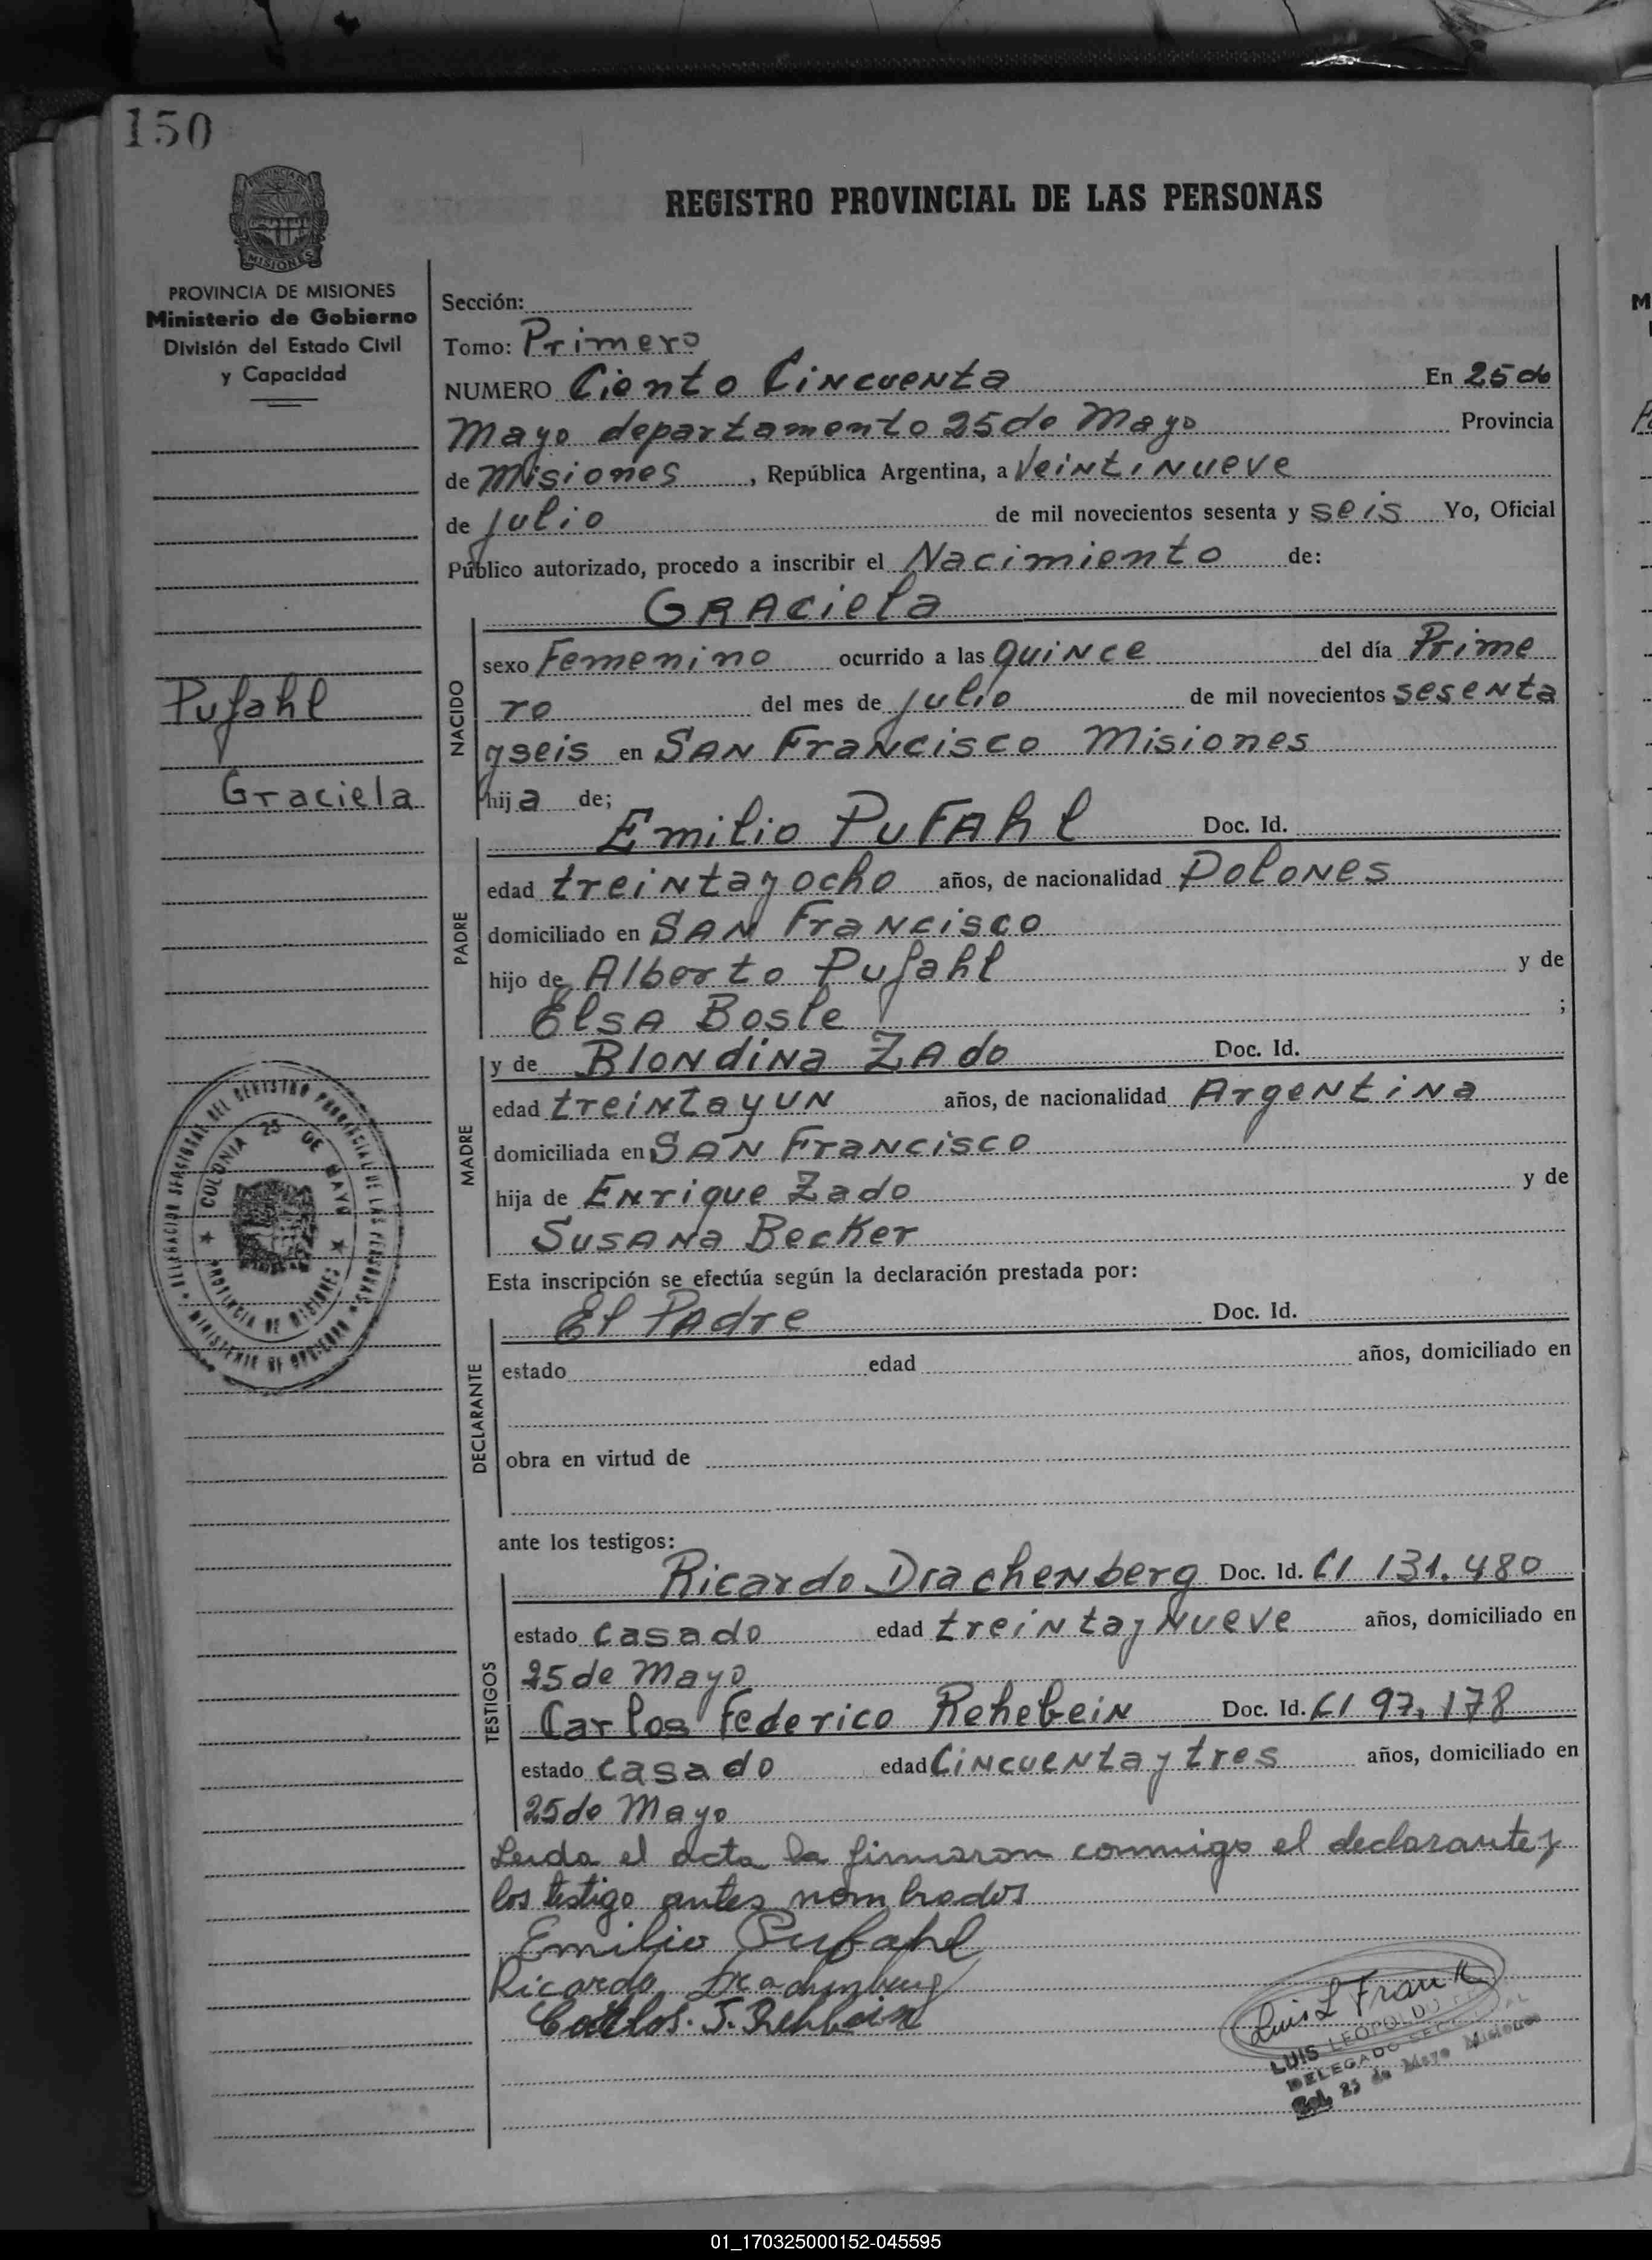 150
REGISTRO PROVINCIAL DE LAS PERSONAS
PROVINCIA DE MISIONES
Ministerio de Gobierno
División del Estado Civil
y Capacidad
Pufahl
Graciela
Sección:
Tomo: Primero
NUMERO Ciento Cincuenta En 25 de
Mayo departamento 25 de Mayo Provincia
de Misiones, República Argentina, a Veintinueve
de julio de mil novecientos sesenta y seis Yo, Oficial
Público autorizado, procedo a inscribir el Nacimiento de:
GRACiela
NACIDO
sexo Femenino ocurrido a las quince del día Prime
ro del mes de julio de mil novecientos sesenta
y seis en SAN Francisco Misiones
hija de;
PADRE
Emilio PuFAhl Doc. Id.
edad treinta y ocho años, de nacionalidad Polones
domiciliado en SAN Francisco
hijo de Alberto Pufahl y de
Elsa Bosle ;
MADRE
y de Blondina Zado Doc. Id.
edad treinta y un años, de nacionalidad Argentina
domiciliada en SAN Francisco
hija de Enrique Zado y de
Susana Becker
Esta inscripción se efectúa según la declaración prestada por:
DECLARANTE
El Padre Doc. Id.
estado edad años, domiciliado en
obra en virtud de
ante los testigos:
TESTIGOS
Ricardo Drachenberg Doc. Id. CI 131.480
estado casado edad treinta y nueve años, domiciliado en
25 de Mayo
Carlos Federico Rehebein Doc. Id. CI 97.178
estado casado edad Cincuenta y tres años, domiciliado en
25 de Mayo
Leida el acta la firmaron conmigo el declarante y
los testigo antes nombrados
Emilio Pufahl
Ricardo Drachenberg
Carlos. F. Rehbein
Luis L Frank
LUIS LEOPOLDO
DELEGADO SECCIONAL
Col. 25 de Mayo Misiones
DELEGACION SECCIONAL DEL REGISTRO PROVINCIAL DE LAS PERSONAS
MINISTERIO DE GOBIERNO
COLONIA 25 DE MAYO
PROVINCIA DE MISIONES
PROVINCIA DE
MISIONES
01_170325000152-045595